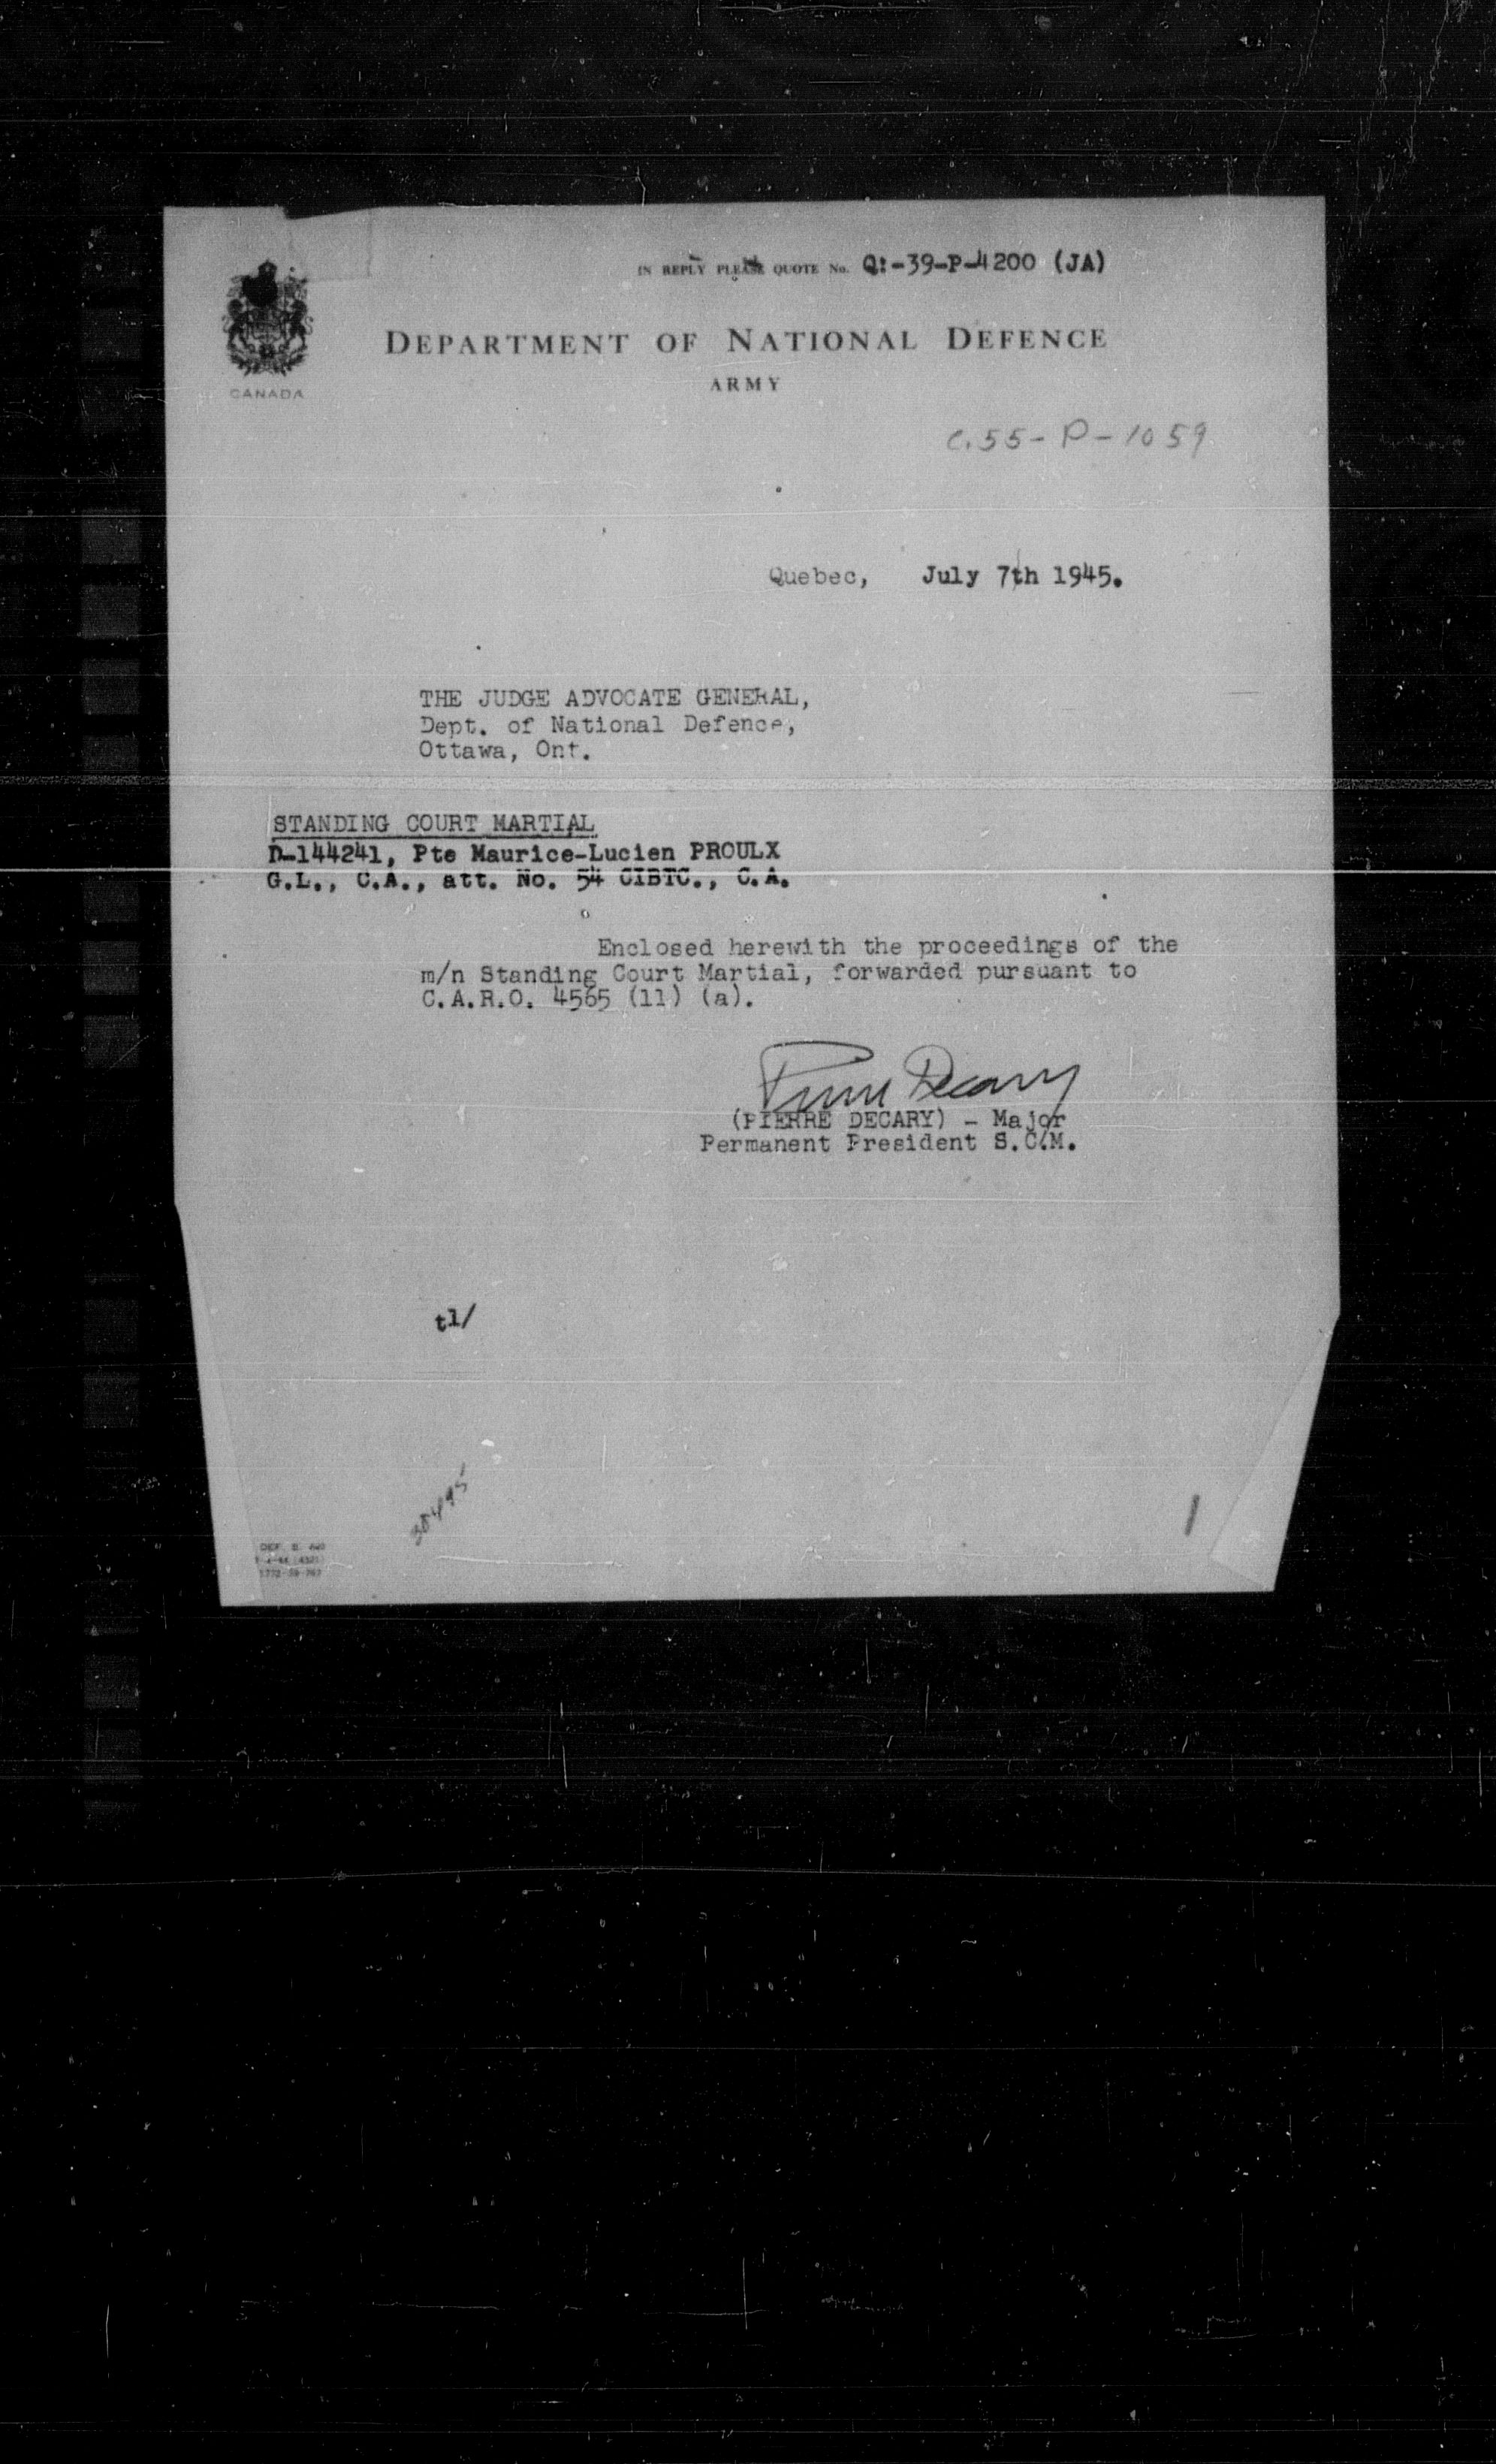 IN REPLY PLEASE QUOTE No. Q:-39-P-4200 (JA)
CANADA
DEPARTMENT OF NATIONAL DEFENCE
ARMY
C.55-P-1059
Quebec, July 7th 1945.
THE JUDGE ADVOCATE GENERAL,
Dept. of National Defence,
Ottawa, Ont.
STANDING COURT MARTIAL
D-144241, Pte Maurice-Lucien PROULX
G.L., C.A., att. No. 54 CIBTC., C.A.
Enclosed herewith the proceedings of the
m/n Standing Court Martial, forwarded pursuant to
C.A.R.O. 4565 (11) (a).
Pierre Decary
(PIERRE DECARY) - Major
Permanent President S.C.M.
tl/
1
DEF. B.